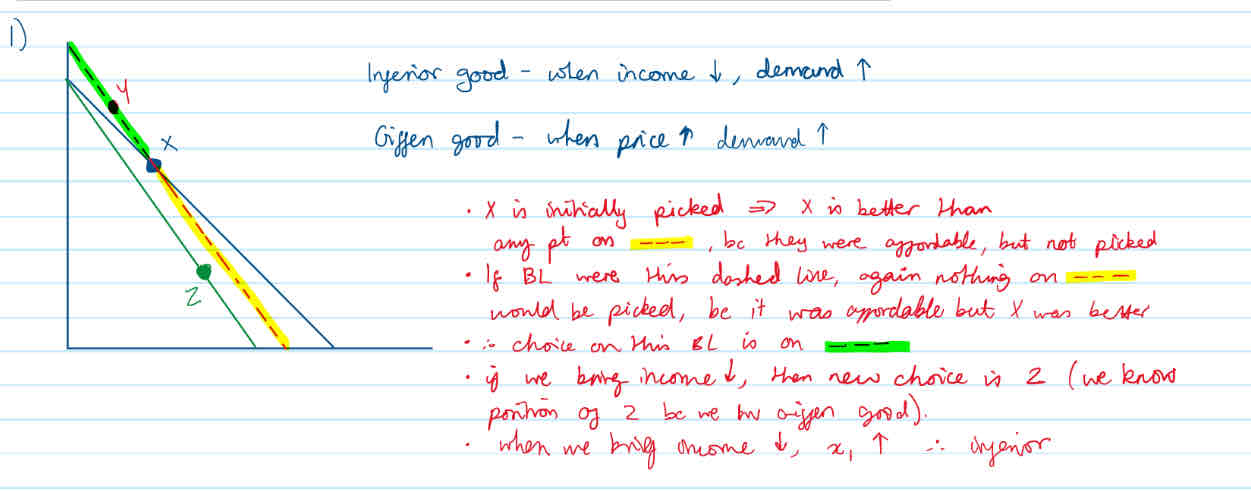 1)
Y
X
Inferior good - when income ↓, demand ↑
Giffen good - when price ↑ demand ↑
• X is initially picked ⇒ X is better than
any pt on ---, bc they were affordable, but not picked
• If BL were this dashed line, again nothing on ---
would be picked, bc it was affordable but X was better
Z
• ∴ choice on this BL is on ----
• if we bring income ↓, then new choice is Z (we know
position of Z bc we giffen good).
• when we bring income ↓, x₁ ↑ ∴ inferior